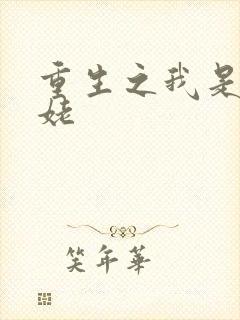 重生之我是
姥
笑年華